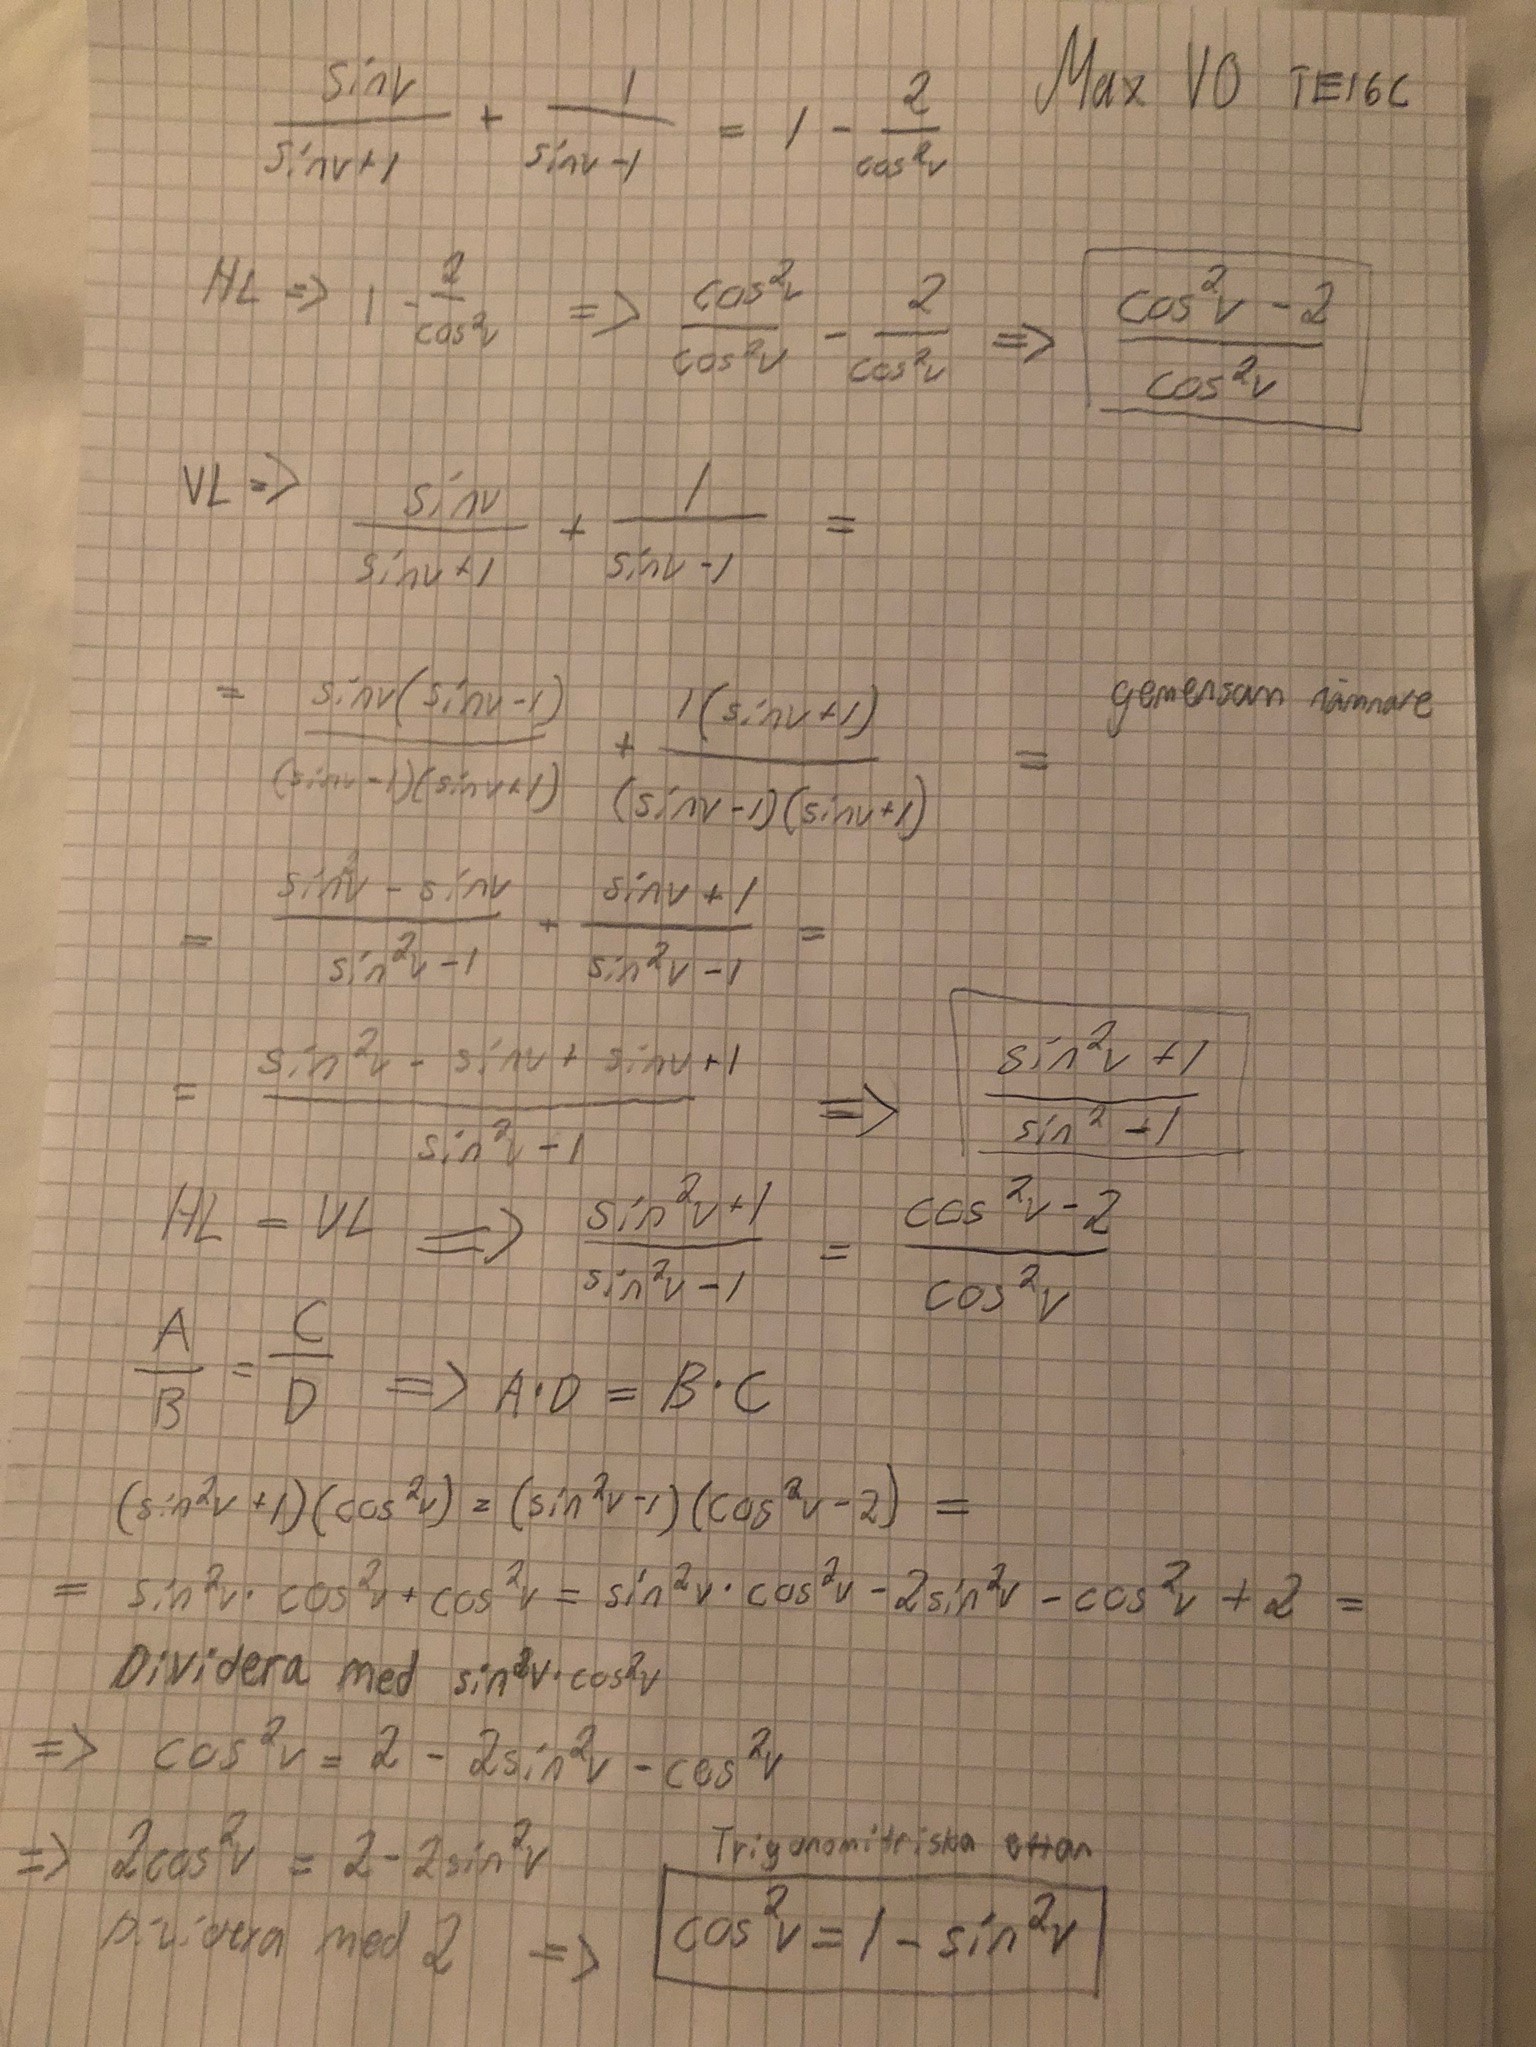 sinv/(sinv+1) + 1/(sinv-1) = 1 - 2/cos²v
Max VO TE16C
HL => 1 - 2/cos²v => cos²v/cos²v - 2/cos²v => (cos²v - 2)/cos²v
VL => sinv/(sinv+1) + 1/(sinv-1) =
= sinv(sinv-1)/((sinv-1)(sinv+1)) + 1(sinv+1)/((sinv-1)(sinv+1)) = gemensam nämnare
= (sin²v - sinv)/(sin²v-1) + (sinv+1)/(sin²v-1) =
= (sin²v - sinv + sinv+1)/(sin²v-1) => (sin²v+1)/(sin² -1)
HL = VL => (sin²v+1)/(sin²v-1) = (cos²v-2)/cos²v
A/B = C/D => A·D = B·C
(sin²v+1)(cos²v) = (sin²v-1)(cos²v-2) =
= sin²v·cos²v + cos²v = sin²v·cos²v - 2sin²v - cos²v + 2 =
Dividera med sin²v·cos²v
=> cos²v = 2 - 2sin²v - cos²v
=> 2cos²v = 2 - 2sin²v
Trigonomitriska ettan
Dividera med 2 => cos²v = 1 - sin²v